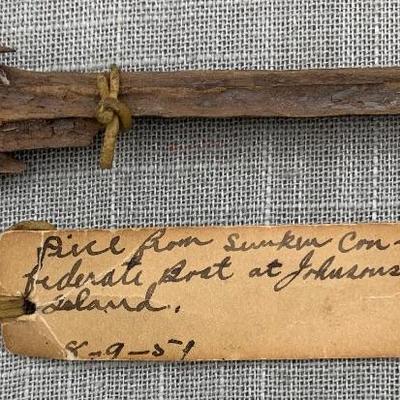 Piece from Sunken Con-
federate Boat at Johnsons
Island.
8-9-59